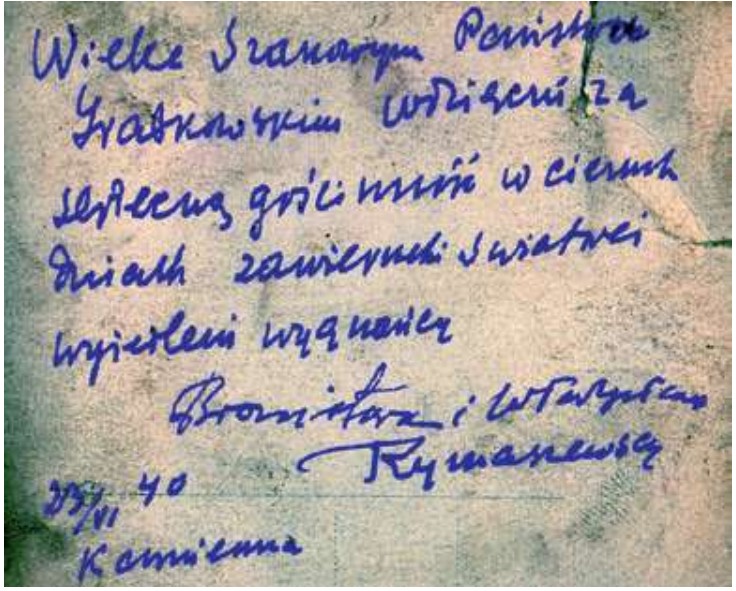 Wielce Szanownym Państwu
wdzięczni za
serdeczną gościnność w ciemnych
dniach zawieruchy światowej
wysiedleni wygnańcy
Bronisława i Władysław
Rymaszewscy
/VI 40
Kamienna